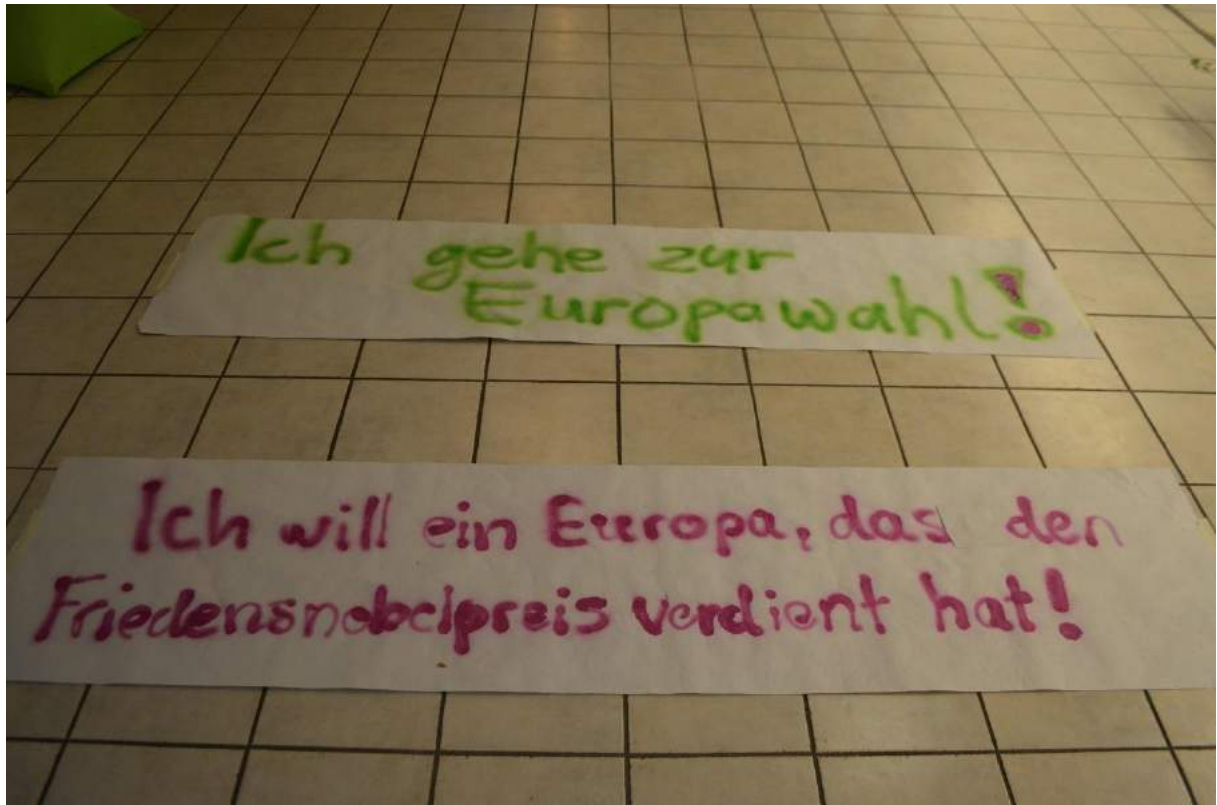 Ich gehe zur
Europawahl!
Ich will ein Europa, das den
Friedensnobelpreis verdient hat!